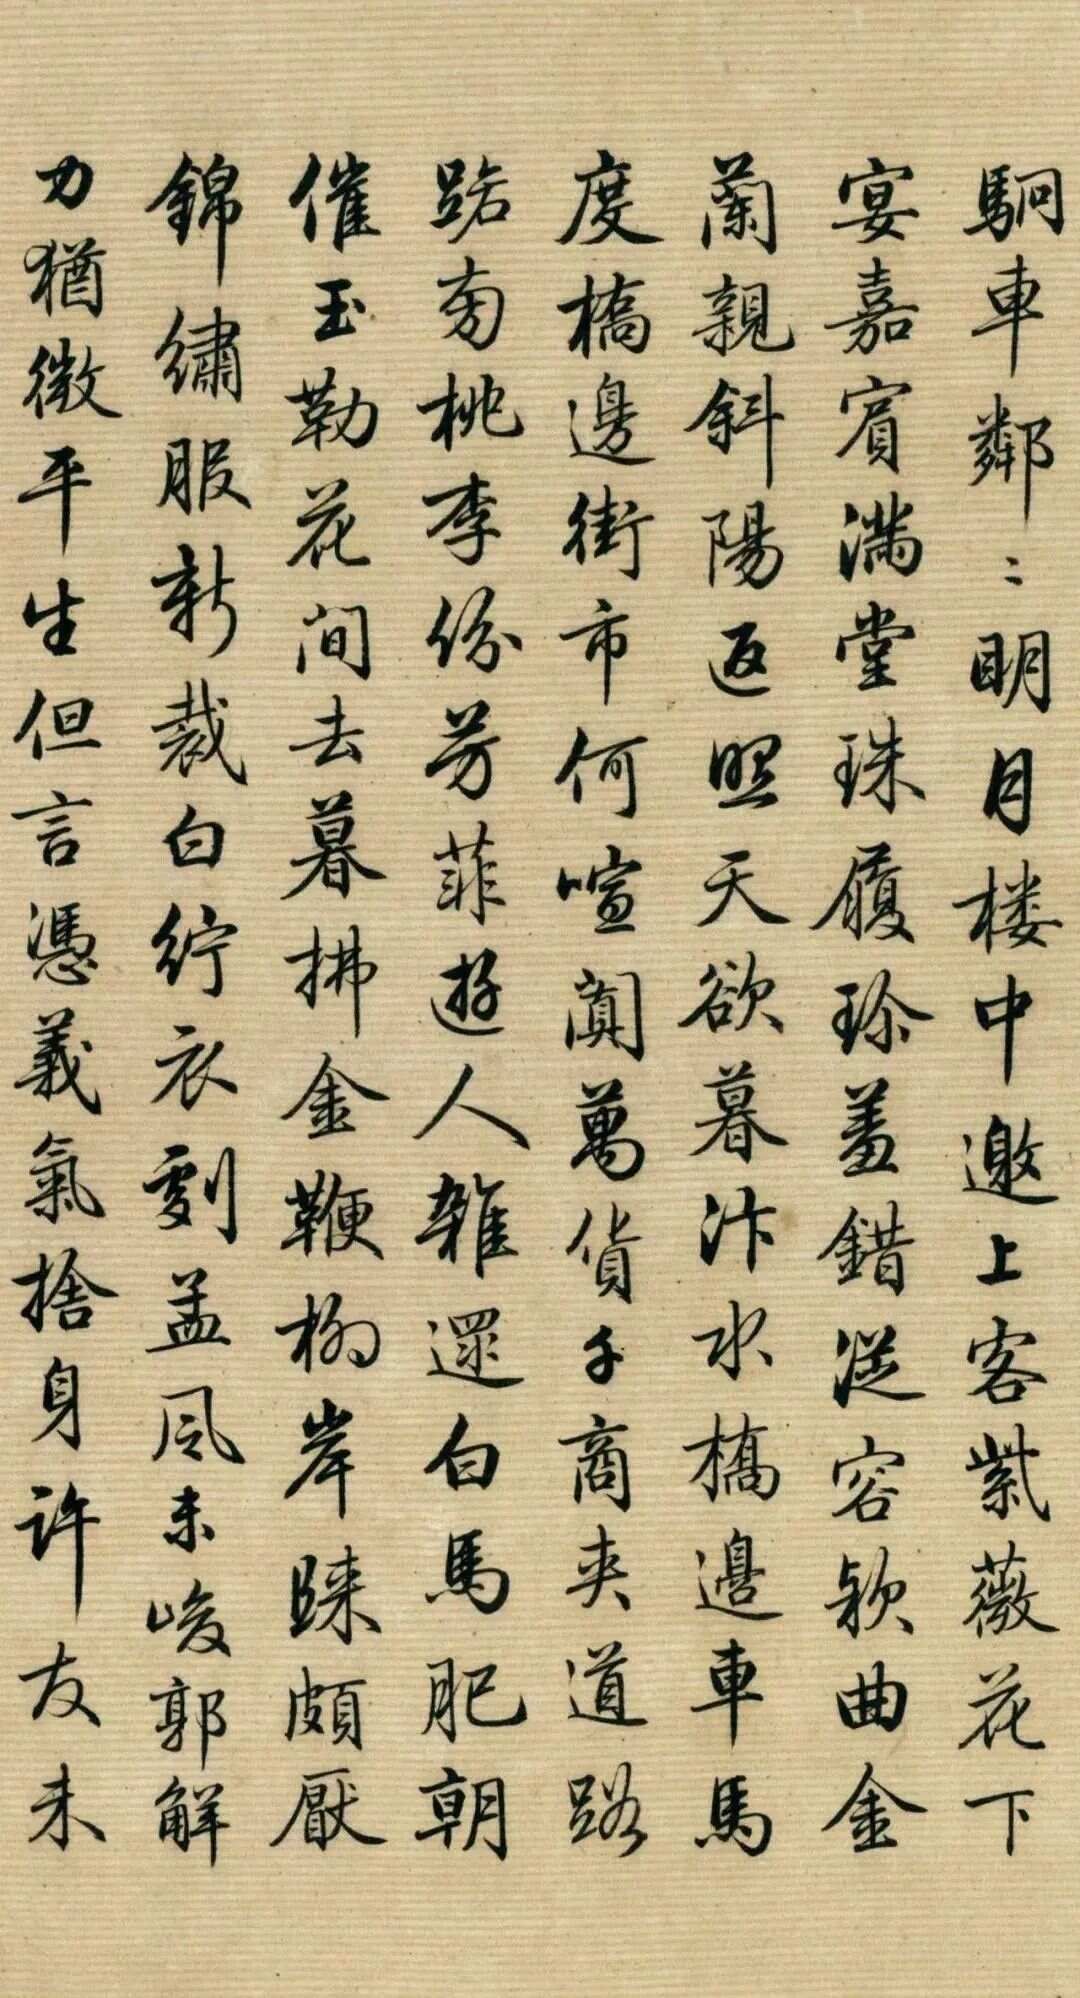 駉車鄰〻明月楼中邀上客紫薇花下
宴嘉賓滿堂珠履珍羞錯從容欵曲金
蘭親斜陽返照天欲暮汴水橋邊車馬
度橋邊街市何喧闐萬貨千商夹道路
路旁桃李份芳菲遊人雜遝白馬肥朝
催玉勒花间去暮拂金鞭柳岸歸頗厭
錦繡服新裁白紵衣劇孟風未峻郭解
力猶微平生但言憑義氣捨身許友未